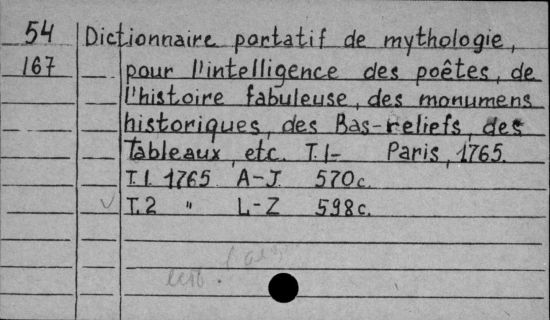 54 Dictionnaire portatif de mythologie,
167 pour l'intelligence des poêtes, de
l'histoire fabuleuse, des monumens
historiques, des Bas-reliefs, des
Tableaux, etc. T.1- Paris, 1765.
T.1. 1765 A-J. 570c.
T.2 " L-Z 598c.